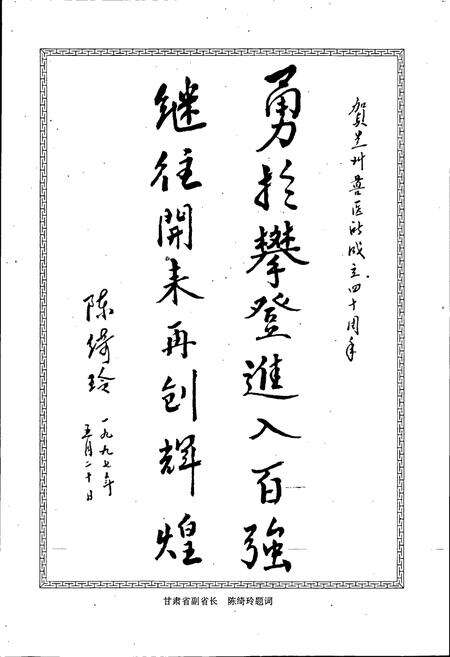 賀兰州兽医所成立四十周年
勇於攀登進入百強
継往開来再创輝煌
陈绮玲
一九九七年
五月二十日
甘肃省副省长　陈绮玲题词